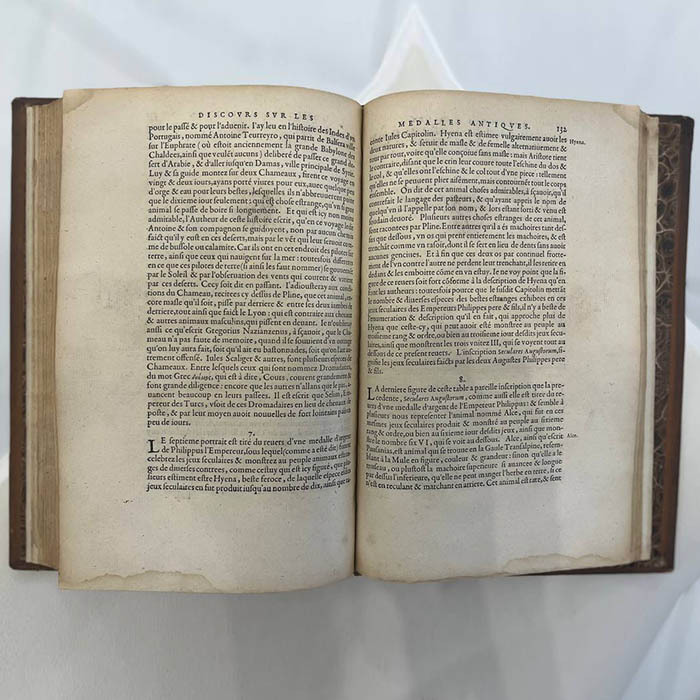 DISCOVRS SVR LES
pour le passé & pour l'aduenir. I'ay leu en l'histoire des Indes d'vn
Portugais, nommé Antoine Teurreyro, qui partit de Balsera ville
sur l'Euphrate (où estoit anciennement la grande Babylone des
Chaldees, ainsi que veulēt aucuns) deliberé de passer ce grand de-
sert d'Arabie, & d'aller iusqu'en Damas, ville principale de Syrie.
Luy & sa guide montez sur deux Chameaux, firent ce voyage en
vingt & deux iours, ayans porté viures pour eux, auec quelque peu
d'orge & eau pour leurs bestes, lesquelles ils n'abbreuerent point
que le dixieme iour seulement: qui est chose estrange, qu'vn grand
animal se passe de boire si longuement. Et qui est icy non moins
admirable, l'Autheur de ceste histoire escrit, qu'en ce voyage ledit
Antoine & son compagnon se guidoyent, non par aucun chemin
faict qu'il y eust en ces deserts, mais par le vēt qui leur seruoit com-
me de bussole ou calamite. Car ils ont en cest endroit des pilotes de
terre, ainsi que ceux qui nauigent sur la mer: toutesfois different
en ce que ces pilotes de terre (si ainsi les faut nommer) se gouuernēt
par le Soleil & par l'obseruation des vents qui courent & varient
par ces deserts. Cecy soit dit en passant. I'adiousteray aux condi-
tions du Chameau, recitees cy dessus de Pline, que cet animal, en-
core masle qu'il soit, pisse par derriere & entre les deux iambes de
derriere, tout ainsi que faict le Lyon: qui est au contraire aux chats
& autres animaux masculins, qui pissent en deuant. Ie n'oublieray
aussi ce qu'escrit Gregorius Nazianzenus, à sçauoir, que le Cha-
meau n'a pas faute de memoire, quand il se souuient d'vn outrage
qu'on luy aura fait, soit qu'il ait eu bastonnades, soit qu'on l'ait au-
trement offensé. Iules Scaliger & autres, font plusieurs especes de
Chameaux. Entre lesquels ceux qui sont nommez Dromadaires,
du mot Grec, qui est à dire, Cours, courent grandement &
font grande diligence: encore que les autres n'allans que le pas, a-
uancent beaucoup en leurs passees. Il est escrit que Selim, Empe-
reur des Turcs, vsoit de ces Dromadaires en lieu de cheuaux de
poste, & par leur moyen auoit nouuelles de fort lointains païs en
peu de iours.
7.
LE septieme portrait est tiré du reuers d'vne medalle d'argent
de Philippus l'Empereur, sous lequel (comme a esté dit) furent
celebrez les ieux seculaires & monstrez au peuple animaux estranges
de diuerses contrees, comme cestuy qui est icy figuré, que plu-
sieurs estiment estre Hyena, beste feroce, de laquelle espece esdits
ieux seculaires en fut produit iusqu'au nombre de dix, ainsi que ra-
MEDALLES ANTIQVES. 132
conte Iules Capitolin. Hyena est estimee vulgairement auoir les
deux natures, & seruir de masle & de femelle alternatiuement &
tour par tour, voire qu'elle conçoiue sans masle: mais Aristote tient
le contraire, disant que le crin leur coure toute l'eschine du dos &
le col, & qu'elles ont l'eschine & le col tout d'vne piece: tellement
qu'elles ne se peuuent plier aisément, mais contournēt tout le corps
ensemble. On dit de cet animal choses admirables, à sçauoir, qu'il
contrefait le langage des pasteurs, & qu'ayant appris le nom de
quelqu'vn il l'appelle par son nom, & lors estant sorti & venu est
soudain deuoré. Plusieurs autres choses estranges de cet animal,
sont racontees par Pline. Entre autres qu'il a és machoires tant des-
sus que dessous, vn os qui prent entierement les machoires, & est
trenchāt comme vn rasoir, dont il se sert en lieu de dents sans auoir
aucunes gencives. Et à fin que ces deux os par continuel frotte-
ment de l'vn contre l'autre ne perdent leur trenchant, il les tient en-
clos & les emboitte côme en vn estuy. Ie ne voy point que la figu-
re de ce reuers soit fort côforme à la description de Hyena qu'en
font les autheurs: toutesfois pource que le susdit Capitolin mettāt
le nombre & diuerses especes des bestes estranges exhibees en ces
ieux seculaires des Empereurs Philippes pere & fils, il n'y a beste de
l'enumeration & description qu'il en fait, qui approche plus de
Hyena que ceste-cy, qui peut auoir esté monstree au peuple au
troisieme rang & ordre, ou bien au troisieme iour desdits ieux secu-
laires, ainsi que monstrent les trois vnitez III, qui se voyent au
dessous de ce present reuers. L'inscription Seculares Augustorum, si-
gnifie les ieux seculaires faicts par les deux Augustes Philippes pere
& fils.
Hyena.
8.
LA derniere figure de ceste table a pareille inscription que la pre-
cedente, Seculares Augustorum, comme aussi elle est tiree du
reuers d'vne medalle d'argent de l'Empereur Philippus: & semble à
plusieurs representer l'animal nommé Alce, qui fut en ces
mesmes ieux seculaires produit & monstré au peuple au sixieme
rang & ordre, ou bien au sixieme iour desdits ieux, ainsi que mon-
stre le nombre six VI, qui se voit au dessous. Alce, ainsi qu'escrit
Pausanias, est animal qui se trouue en la Gaule Transalpine, ressem-
blant à la Mule en figure, couleur & grandeur: sinon qu'elle a le
museau, ou plustost la machoire superieure si auancee & longue
par dessus l'inferieure, qu'elle ne peut manger l'herbe en terre, si ce
n'est en reculant & marchant en arriere. Cet animal est rare, & sent
Alce.